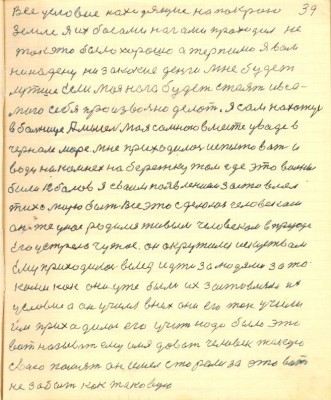 39
Все условие находящие на покрою
земле я их босыми ногами проходил не
это было хорошо а терпимо я вам
ни надену ни за какие денги мне будет
лутше если моя нога будет стоят и са-
мого себя произвольно делат. Я сам нахожус
в болнице Амысел Мая солнцо вместе увадев
черном море. мне приходилос испытоват и
воду на камнех на бережку там где это волны
были 12 балов Я своим появлением заставлял
тихо мирно быт. Все это сделоное человеком
он же умае родился живым человеком в природе
Его устрело чужое. он окружился искуством
Ему приходилос вслед идти за людями за та-
кими как они уже были их заставляли их
условие а он учился в них они его так учили
Им приходилос его учит надо было это
вот называт ему имя дават человек живую
свою памят он имел сто роля за это ват
не забыт как таковую